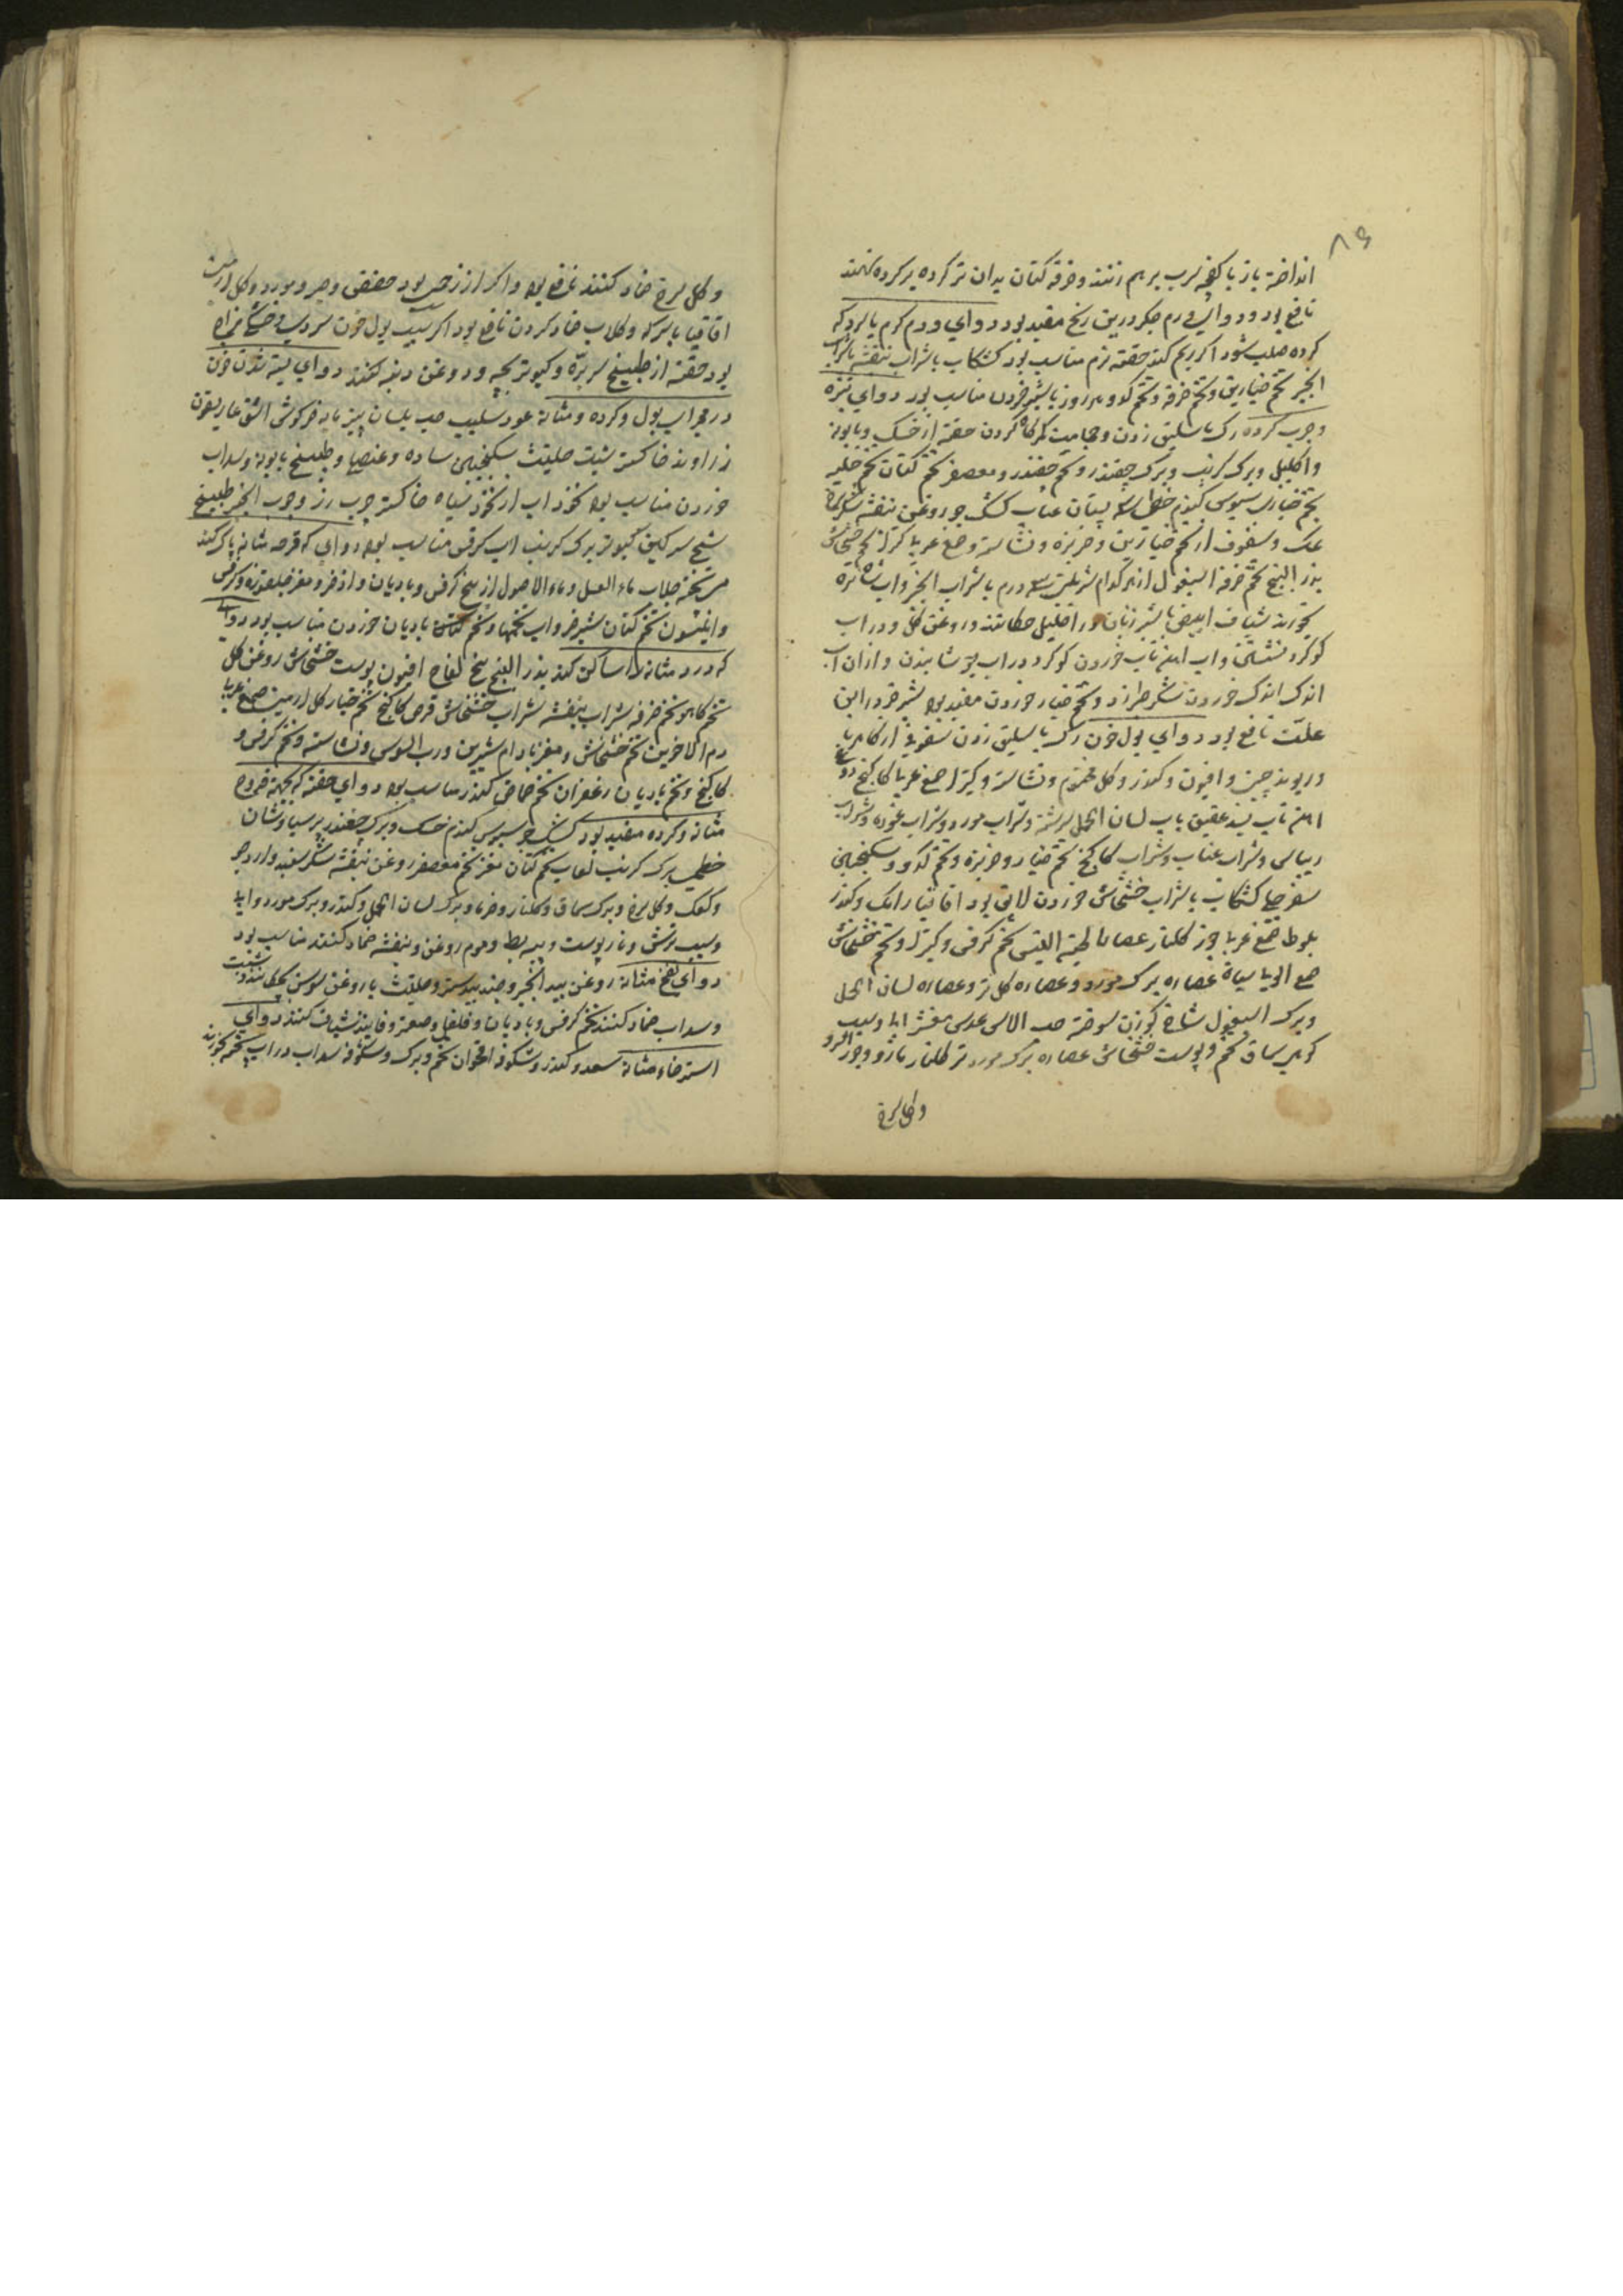 ۸۶
انداخته باز با کفچه سرب برهم زنند و خرقه کتان بدان تر کرده بر کرده نهند
نافع بود و دوای ورم جکر درین رنج مفید بود دوای ورم کرم با سرد که
کرده صلب شود اکر ریم کند حقنه نرم مناسب بود کشکاب با شراب بنفشه با شراب
انجیر تخم خیارین و تخم خرفه و تخم کدو هر روز با شیر خوردن مناسب بود دوای بثره
و جرب کرده رک باسلیق زدن و حجامت کمرکاه کردن حقنه از خسک و بابونه
و اکلیل و برک کرنب و برک چغندر و تخم چغندر و معصفر تخم کتان تخم حلبه
تخم خیار سبوس کندم خطمی سپستان عناب کشک جو روغن بنفشه شکر سرخ
نمک و سفوف از تخم خیارین و خربزه و نشاسته و صمغ عربی کتیرا تخم خشخاش
بذر البنج تخم خرفه اسپغول از هر کدام درم با شراب انجیر و اب
بخورند شیاف ابیض با شیر زنان در احلیل چکانند و روغن کل و در اب
کوکرد نشستن و اب اهن تاب خوردن کوکرد در اب جوشانیدن و ازان اب
اندک اندک خوردن شکر طبرزد و تخم خیار خوردن مفید بود شیر خر درین
علت نافع بود دوای بول خون رک باسلیق زدن سفوف از کاهربا
و ریوند چینی و افیون و کندر و کل مختوم و نشاسته و کتیرا صمغ عربی کاکنج
اهن تاب عقیق باب لسان الحمل سرشته و شراب مورد و شراب غوره و شراب
ریباس و شراب عناب و شراب کاکنج تخم خیار و خربزه و تخم کدو و سکنجبین
سفرجلی کشکاب با شراب خشخاش خوردن لایق بود اقاقیا رامک و کندر
بلوط صمغ عربی جوز کلنار عصاره لحیة التیس تخم کرفس و کتیرا و تخم خشخاش
سیاه عصاره برک مورد و عصاره کل تر و عصاره لسان الحمل
و برک اسپغول شاخ کوزن سوخته حب الاس عدس مقشر ابی و سیب
کوهی سماق تخم و پوست خشخاش عصاره برک مورد تر کلنار مازو و جوز السرو
و کل سرخ
و کل سرخ ضماد کنند نافع بود و اکر از زحیر بود حضض و صبر و مورد و کل ارمنی
اقاقیا با سرکه و کلاب ضماد کردن نافع بود اکر سبب بول خون سردی مزاج
بود حقنه از طبیخ سر بره و کبوتر بچه و روغن دنبه کنند دوای بسته شدن خون
در مجرای بول و کرده و مثانه عود صلیب حب بلسان پنیر مایه خرکوش اشق غاریقون
زراوند خاکستر شبت حلتیت سکنجبین ساده و عنصلی و طبیخ بابونه و سداب
خوردن مناسب بود نخود اب از نخود سیاه خاکستر چوب رز و چوب انجیر طبیخ
شیح سرکین کبوتر برک کرنب اب کرفس مناسب بود دوای که قرحه مثانه پاک کند
جلاب ماء العسل و ماء الاصول از بیخ کرفس و بادیان و اذخر و مغز
و انیسون تخم کتان شیر خر و اب تخمها و تخم کتان بادیان خوردن مناسب بود دوای
که درد مثانه را ساکن کند بذر البنج بیخ لفاح افیون پوست خشخاش روغن کل
تخم کاهو تخم خرفه شراب بنفشه شراب خشخاش قرص کاکنج تخم خیار کل ارمنی صمغ عربی
دم الاخوین تخم خشخاش و مغز بادام شیرین و رب السوس و نشاسته و تخم کرفس و
کاکنج و تخم بادیان زعفران تخم حماض کندر مناسب بود دوای حقنه که بجهة قروح
مثانه و کرده مفید بود کشک جو سبوس کندم خسک و برک چغندر پرسیاوشان
خطمی برک کرنب لعاب تخم کتان مغز تخم معصفر روغن بنفشه شکر سفید و ارد جو
و کعک و کل سرخ و برک سماق و کلنار و خرما و برک لسان الحمل و کندر و برک مورد و ابی
و سیب ترش و نار پوست و پیه بط و موم روغن و بنفشه ضماد کنند مناسب بود
دوای نفخ مثانه روغن بید انجیر و جند بیدستر و حلتیت با روغن سوسن بچکانند و شبت
و سداب ضماد کنند تخم کرفس و بادیان و فلفل و صعتر و فانید شیاف کنند دوای
استرخاء مثانه سعد و کندر و شکوفه اقحوان تخم و برک و شکوفه سداب در اب پخته بخورند